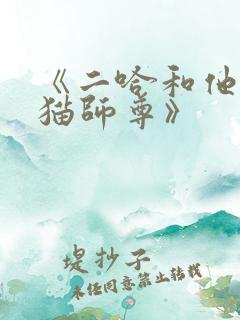 《二哈和他
猫師尊》
堤抄子
未任同意禁止转载